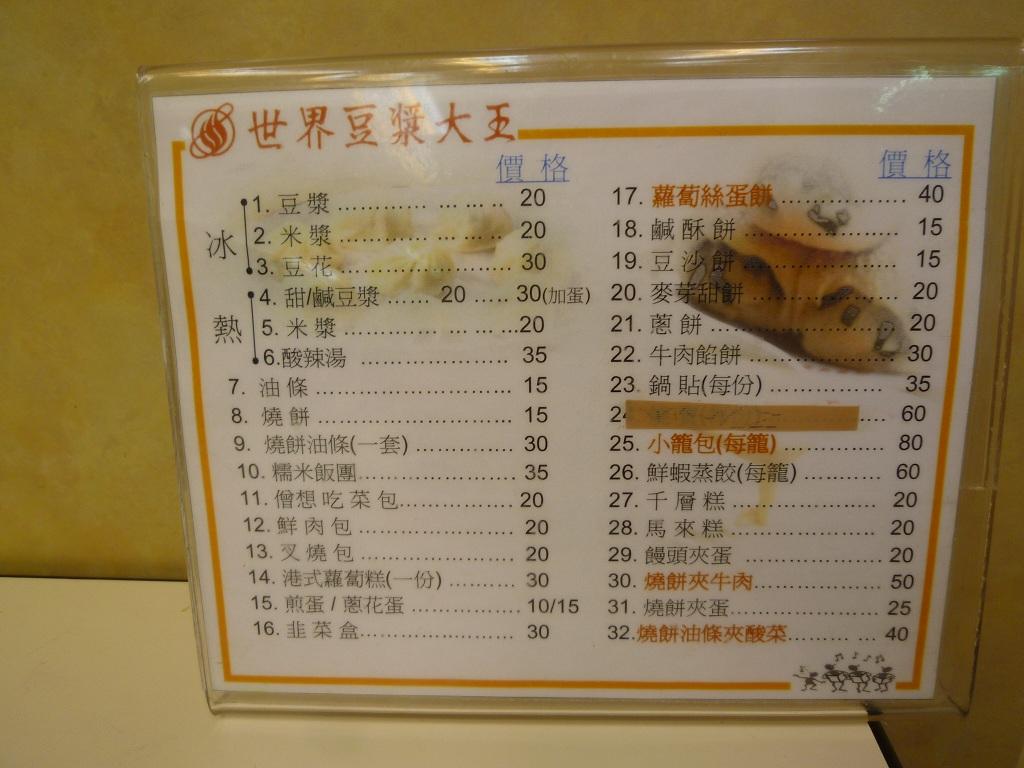 世界豆漿大王
價格
冰
1. 豆漿 20
2. 米漿 20
3. 豆花 30
熱
4. 甜/鹹豆漿 20 30(加蛋)
5. 米漿 20
6.酸辣湯 35
7. 油條 15
8. 燒餅 15
9. 燒餅油條(一套) 30
10. 糯米飯團 35
11. 僧想吃菜包 20
12. 鮮肉包 20
13. 叉燒包 20
14. 港式蘿蔔糕(一份) 30
15. 煎蛋 / 蔥花蛋 10/15
16. 韭菜盒 30
價格
17. 蘿蔔絲蛋餅 40
18. 鹹酥餅 15
19. 豆沙餅 15
20. 麥芽甜餅 20
21. 蔥餅 20
22. 牛肉餡餅 30
23. 鍋貼(每份) 35
24 60
25. 小籠包(每籠) 80
26. 鮮蝦蒸餃(每籠) 60
27. 千層糕 20
28. 馬來糕 20
29. 饅頭夾蛋 20
30. 燒餅夾牛肉 50
31. 燒餅夾蛋 25
32.燒餅油條夾酸菜 40